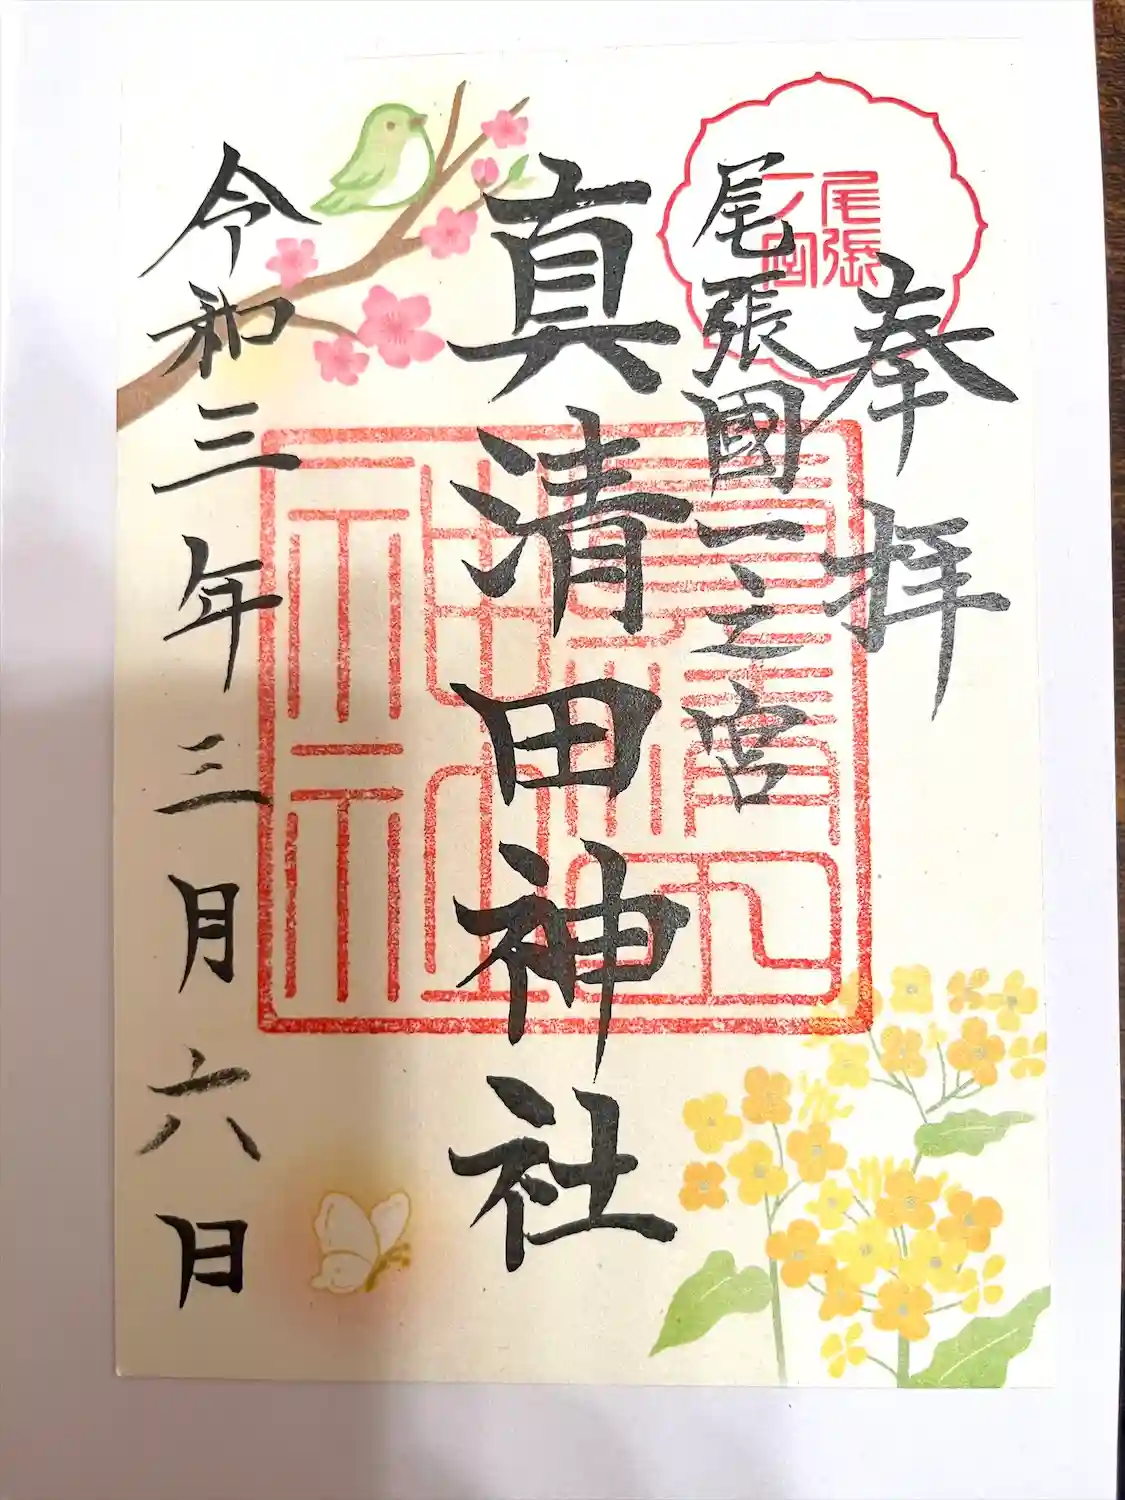 奉拝
尾張國一之宮
尾張
一ノ宮
真清田神社
真清田神社
令和三年三月六日